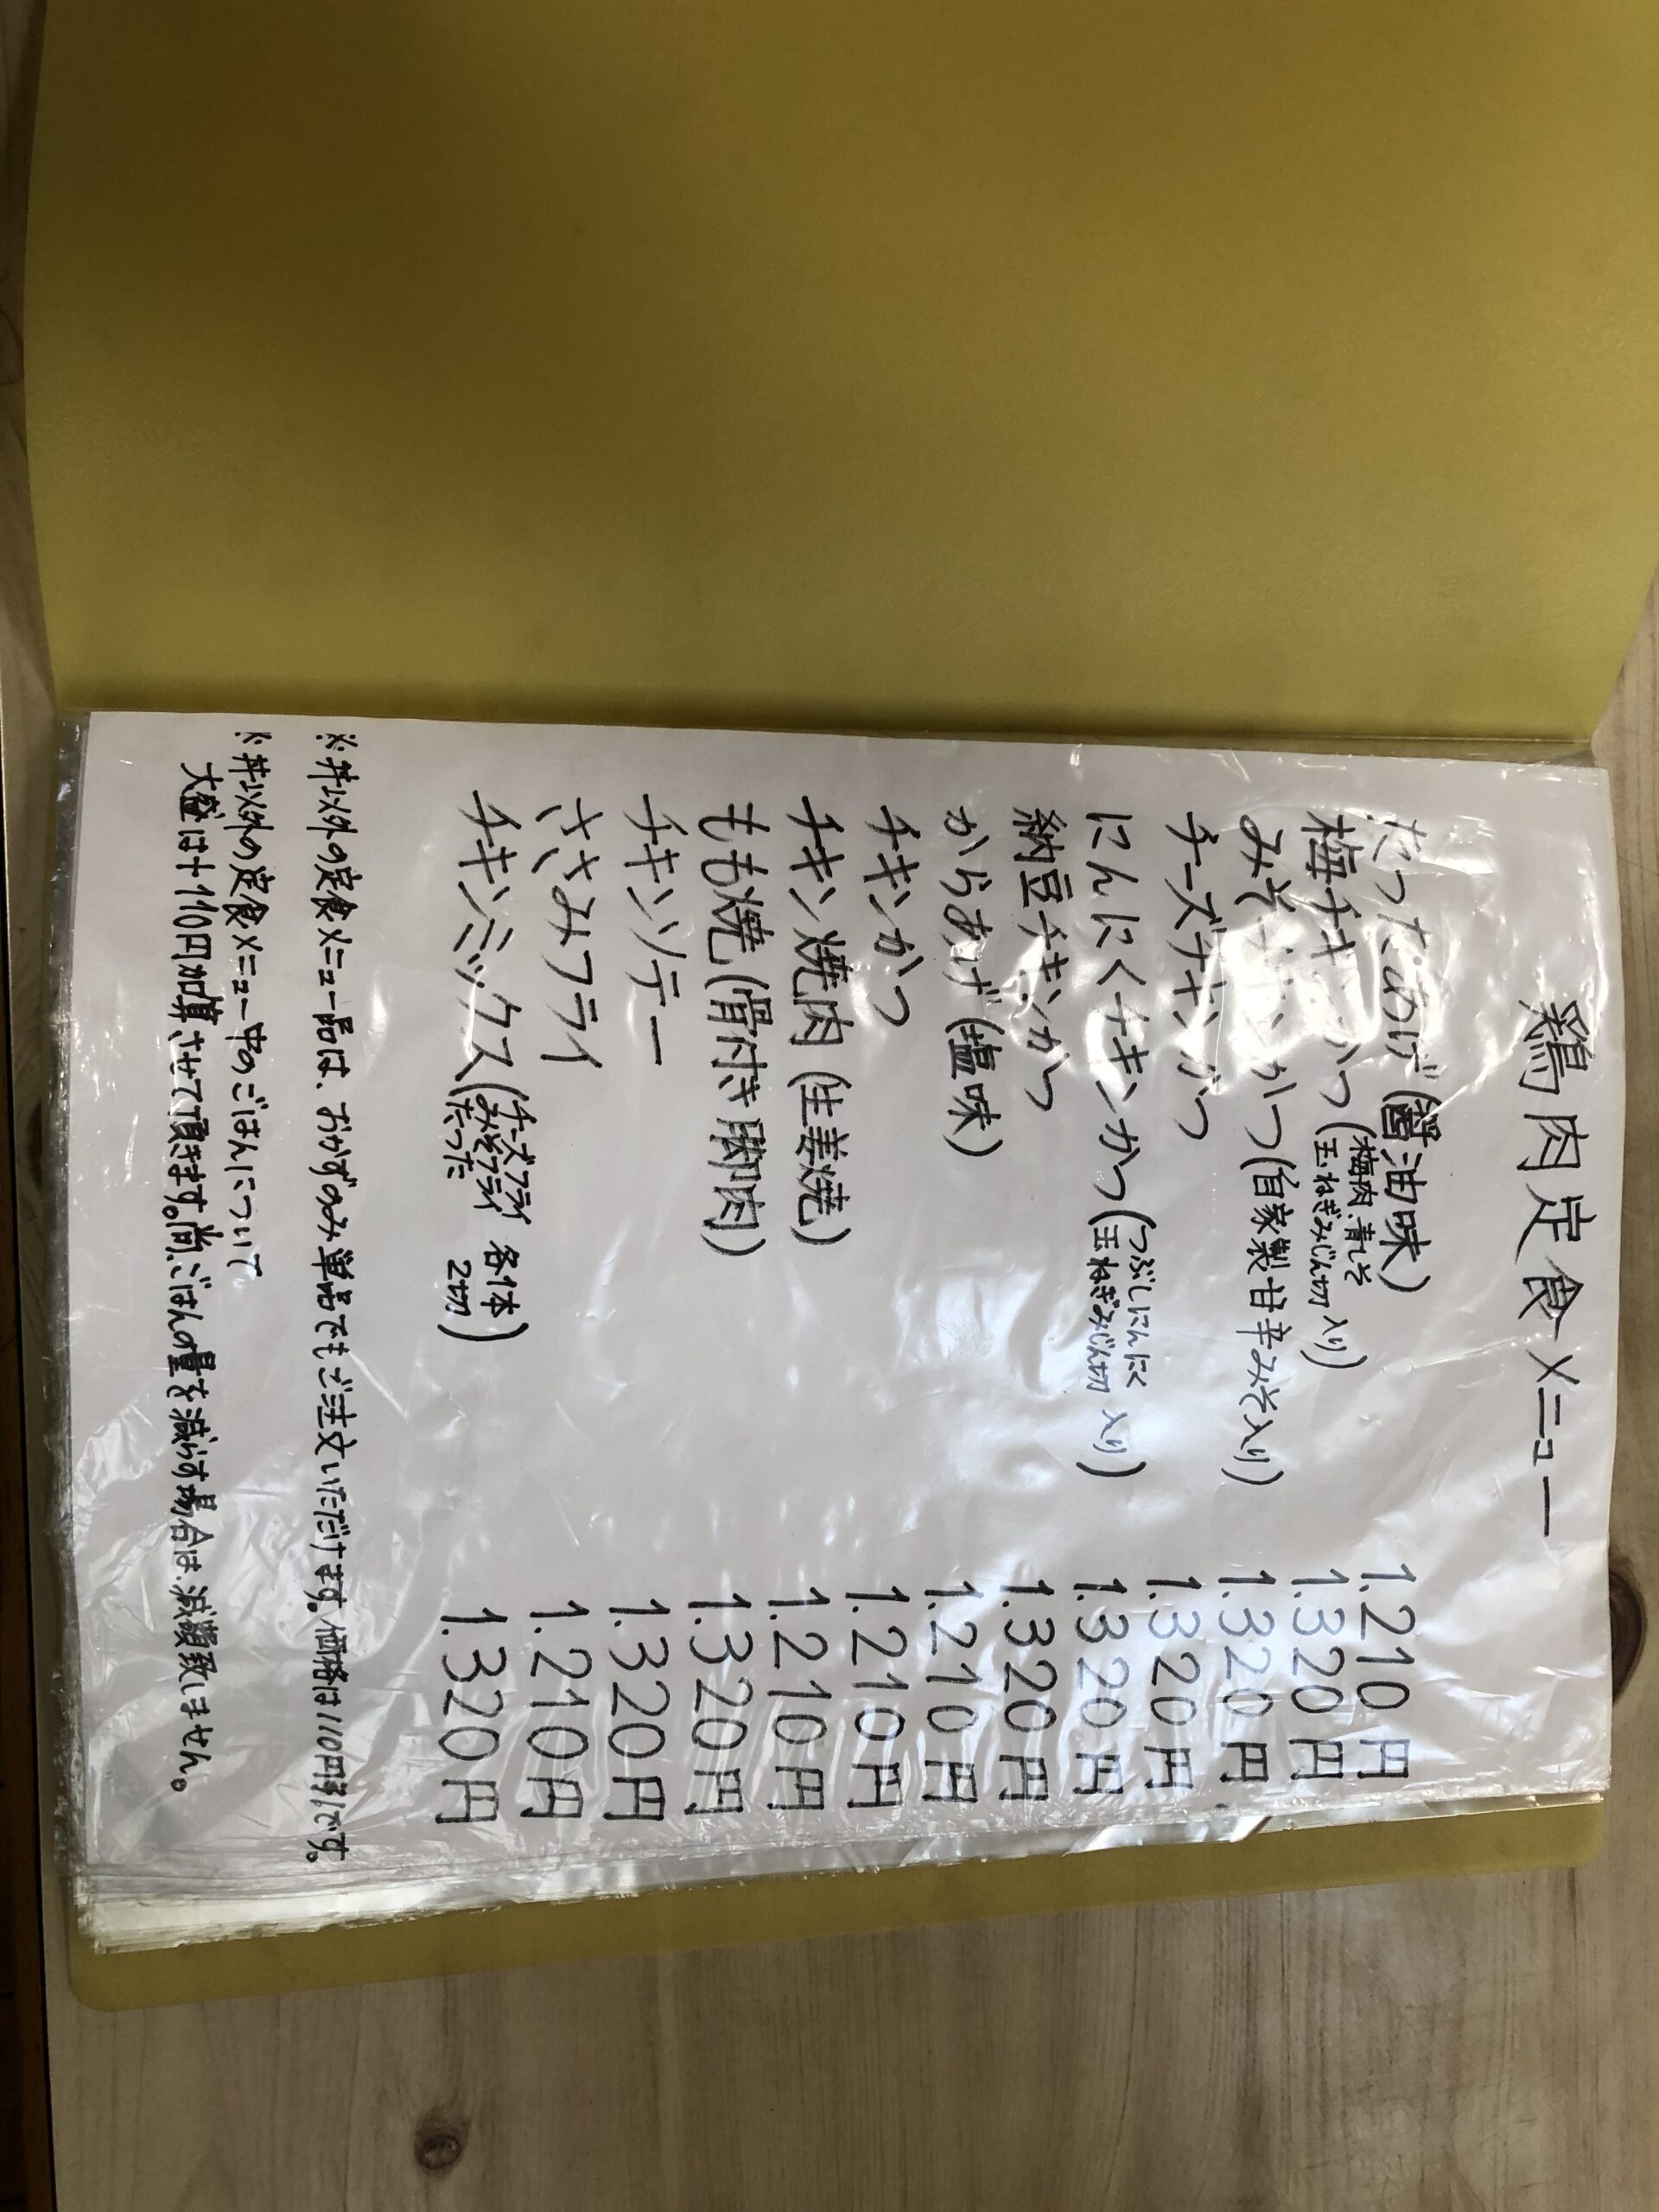 鶏肉定食メニュー
たつたあげ(醤油味) 1.210円
梅チキンかつ(梅肉、青しそ 玉ねぎみじん切 入り) 1.320円
みそチキンかつ(自家製甘辛みそ入り) 1.320円
チーズチキンかつ 1.320円
にんにくチキンかつ(つぶしにんにく 玉ねぎみじん切 入り) 1.320円
納豆チキンかつ 1.320円
からあげ(塩味) 1.210円
チキンかつ 1.210円
チキン焼肉(生姜焼) 1.210円
もも焼(骨付き脚肉) 1.320円
チキンソテー 1.320円
ささみフライ 1.210円
チキンミックス(チーズフライ みそフライ たつた 各1本 2切) 1.320円
※丼以外の定食メニュー品は、おかずのみ単品でもご注文いただけます。価格は110円引です。
※丼以外の定食メニュー中のごはんについて
大盛は+110円加算させて頂きます。尚、ごはんの量を減らす場合は、減額致しません。